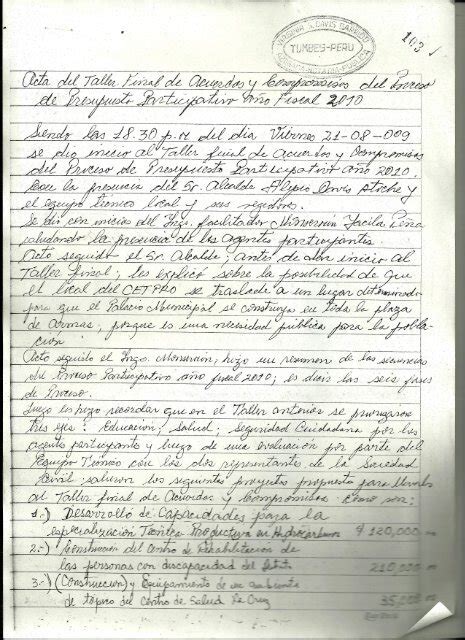 TUMBES-PERU
103
Acta del Taller Final de Acuerdos y Compromisos del Proceso
de Presupuesto Participativo Año Fiscal 2010
Siendo las 18.30 p.m del dia Viernes 21-08-009
se dio inicio al Taller final de acuerdos y Compromisos
del Proceso de Presupuesto Participativo año 2010.
la presencia del Sr. Alcalde
el equipo tecnico local y sus regidores.
Se dio con inicios del Ingº. facilitador Monserrin Peña
saludando la presencia de los Agentes participantes.
Acto seguido el Sr. Alcalde; antes de dar inicio al
Taller final; les explicó sobre la posibilidad de que
el local del CETPRO se traslade a un lugar determinado
para que el Palacio Municipal se construya en toda la plaza
de armas; porque es una necesidad pública para la pobla-
ción
Acto seguido el Ingo. hizo un resumen de las secuencias
del Proceso Participativo año fiscal 2010; es decir las seis fases
de Proceso.
Luego les hizo recordar que en el Taller anterior se
tres ejes: Educacion; Salud; Seguridad Ciudadana por los
agentes participantes y luego de una evaluacion por parte del
Equipo Tecnico con los dos representantes de la Sociedad
Civil salieron los siguientes proyectos para
al Taller final de Acuerdos y Compromisos como son:
1.-) Desarrollo de Capacidades para la
especialización Tecnica Productiva en Hidrocarburos $ 120,000
2.-) Construcción del Centro de Rehabilitación de
las personas con discapacidad del 210,000
3.-) (Construccion) y Equipamiento de un ambiente
de tópico del Centro de Salud La Cruz 35,000